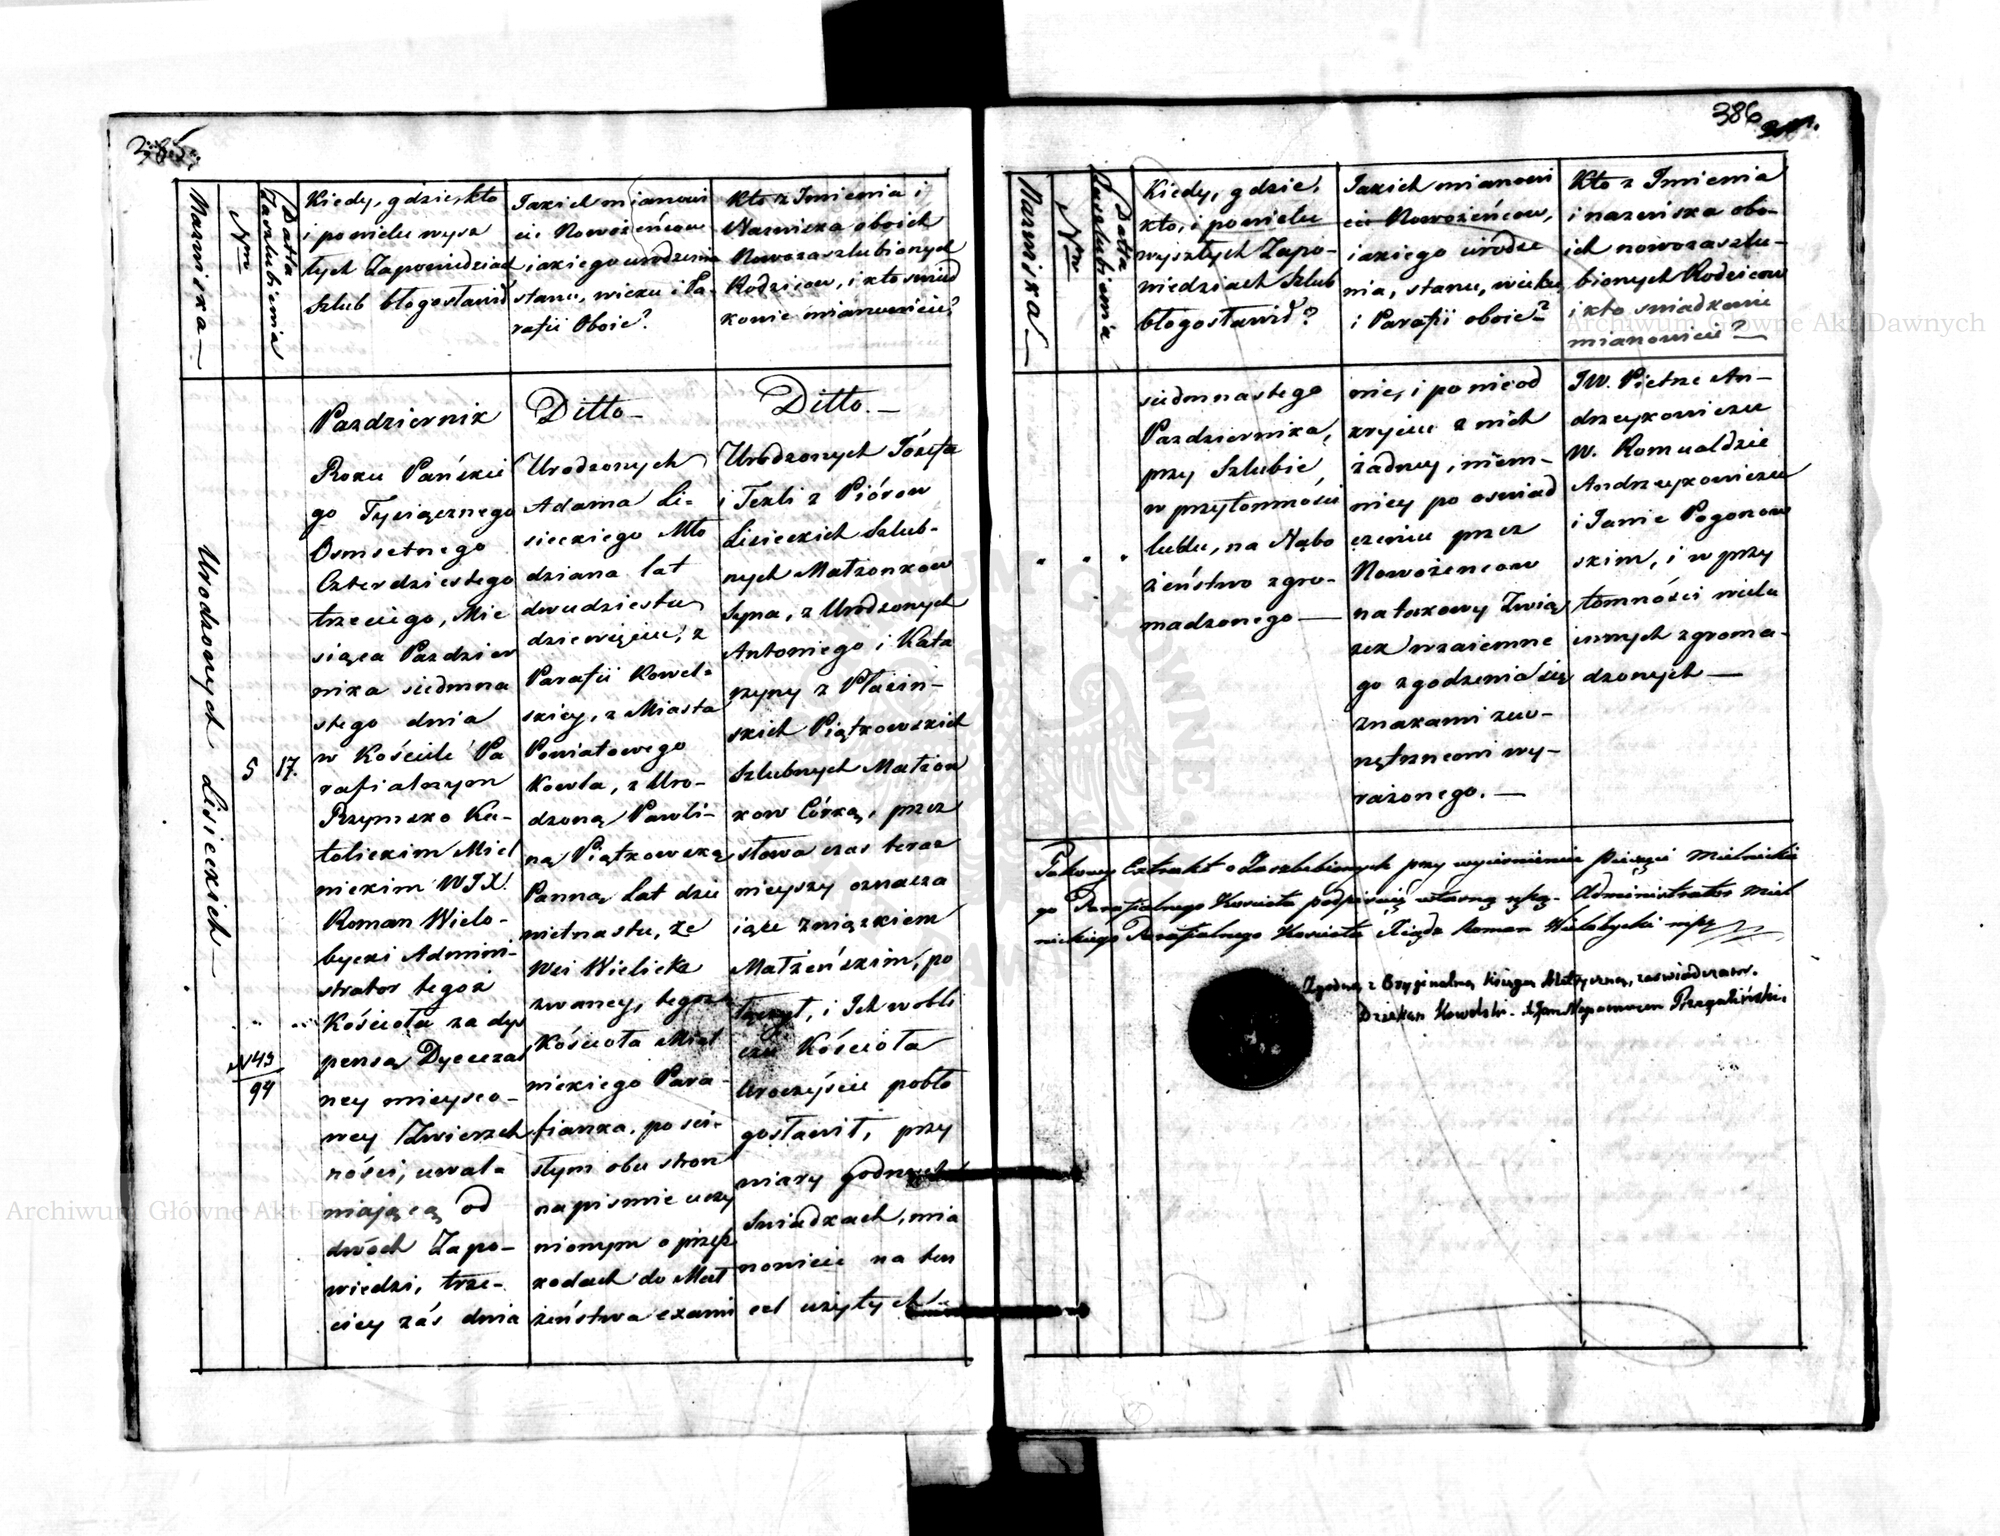 385.
Nazwiska
Nrm
Datta Zaszlubienia
Kiedy, gdzie, kto
i po wielu wysz
łych Zapowiedziach
szlub błogosławił
Jakich mianowi
cie Nowożeńców
iakiego urodzenia
stanu, wieku i Pa-
rafii Oboie?
Kto z Imienia i
Nazwiska oboich
Nowozaszlubionych
Rodziców, i kto świad
kowie mianowicie?
Urodzonych Lisieckich
5
17.
N 43
94
Pazdziernik
Roku Pańskie
go Tysiącznego
Osmsetnego
Czterdziestego
trzeciego, Mie
siąca Pazdzier
nika siedmna
stego dnia
w Kościele Pa
rafialnym
Rzymsko Ka-
tolickim Miel
nickim WJX.
Roman Wielo-
bycki Admini-
strator tegoż
Kościoła za dys
pensą Dyecezal
ney mieysco-
wey Zwierzch
ności, uwal-
niaiącą od
dwóch Zapo-
wiedzi, trze-
ciey zaś dnia
Ditto
Urodzonych
Adama Li-
sieckiego Mło
dziana lat
dwudziestu
dziewięciu, z
Parafii Kowel-
skiey, z Miasta
Powiatowego
Kowla, z Uro-
dzoną Pawli-
ną Piątkowską
Panną Lat dzie
wietnastu, ze
Wsi Wielicka
zwaney, tegoż
Kościoła Miel
nickiego Para-
fianka, po ści-
słym obu stron
na piśmie uczy
nionym o przesz
kodach do Mał
żeństwa exami
Ditto.
Urodzonych Józefa
i Tekli z Piórow
Lisieckich Szlub-
nych Małżonków
Syna, z Urodzonych
Antoniego i Kata
rzyny z Płacin-
skich Piątkowskich
Szlubnych Małżon
ków Córką, przez
słowa czas teraz
nieyszy oznacza
iące związkiem
Małżeńskim, po
łączył, i Ich w obli
czu Kościoła
Uroczyście pobło
gosławił, przy
wiary godnych
Świadkach, mia
nowicie na ten
cel użytych
386
Nazwiska
Nrm
Datta Zaszlubienia
Kiedy, gdzie,
kto, i po wielu
wyszłych Zapo-
wiedziach Szlub
błogosławił?
Jakich mianowi
cie Nowożeńców,
iakiego urodze
nia, stanu, wieku,
i Parafii oboie?
Kto z Imienia
i nazwiska obo-
ich nowozaszlu-
bionych Rodziców
i kto świadkowie
mianowicie?
siedmnastego
Pazdziernika,
przy Szlubie,
w przytomności
ludu, na Nabo
żeństwo zgro-
madzonego
nie, i po nieod
kryciu z nich
żadney, niem-
niey po oświad
czeniu przez
Nowożeńców
na takowy Zwią
zek wzaiemne
go zgodzenia się
znakami zew-
nętrznemi wy-
rażonego.
JW. Pietrze An-
drzeykowiczu
W. Romualdzie
Andrzeykowiczu
i Janie Pogonow
skim, i w przy
tomności wielu
innych zgroma-
dzonych
Takowy Extrakt o Zaszlubionych przy wyciśnieniu pieczęci Mielnickie
go Parafialnego Kościoła podpisuię własną ręką. Administrator Miel
nickiego Parafialnego Kościoła Xiądz Roman Wielobycki mpr
Zgodno z Oryginalną Księgą Metryczną, zaświadczam.
Dziekan Kowelski
Archiwum Główne Akt Dawnych
Archiwum Główne Akt Dawnych